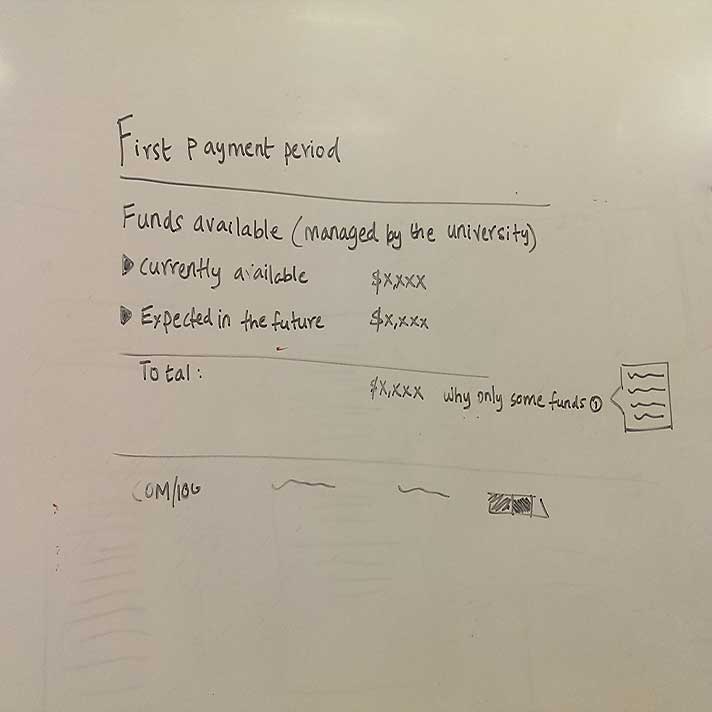 First payment period
Funds available (managed by the university)
Currently available $X,XXX
Expected in the future $X,XXX
Total: $X,XXX why only some funds